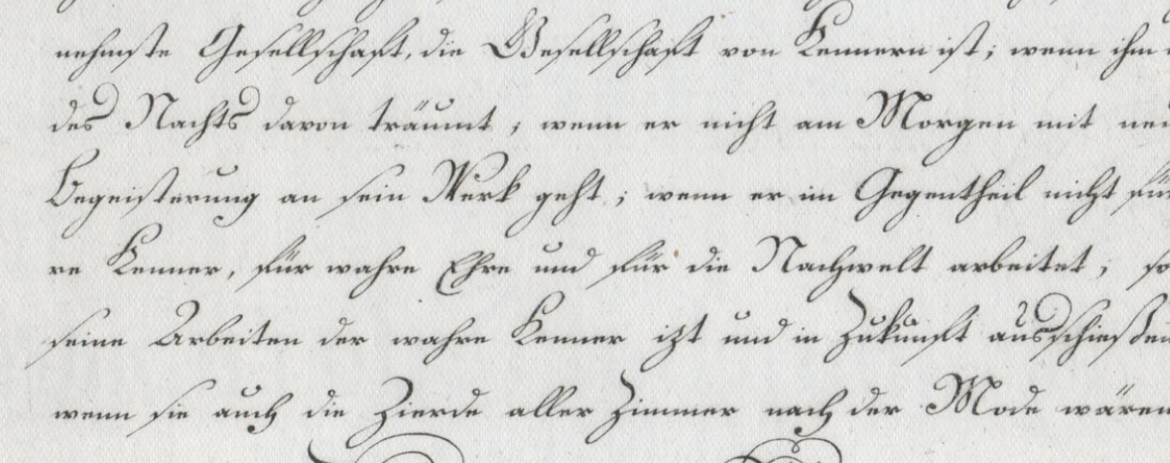 nehmste Gesellschaft, die Gesellschaft von Kennern ist; wenn ihm
des Nachts davon träumt, wenn er nicht am Morgen mit
Begeisterung an sein Werk geht; wenn er im Gegentheil nicht für
re Kenner, für wahre Ehre und für die Nachwelt arbeitet, so
seine Arbeiten der wahre Kenner izt und in Zukunft ausschießen
wenn sie auch die Zierde aller Zimmer nach der Mode wären